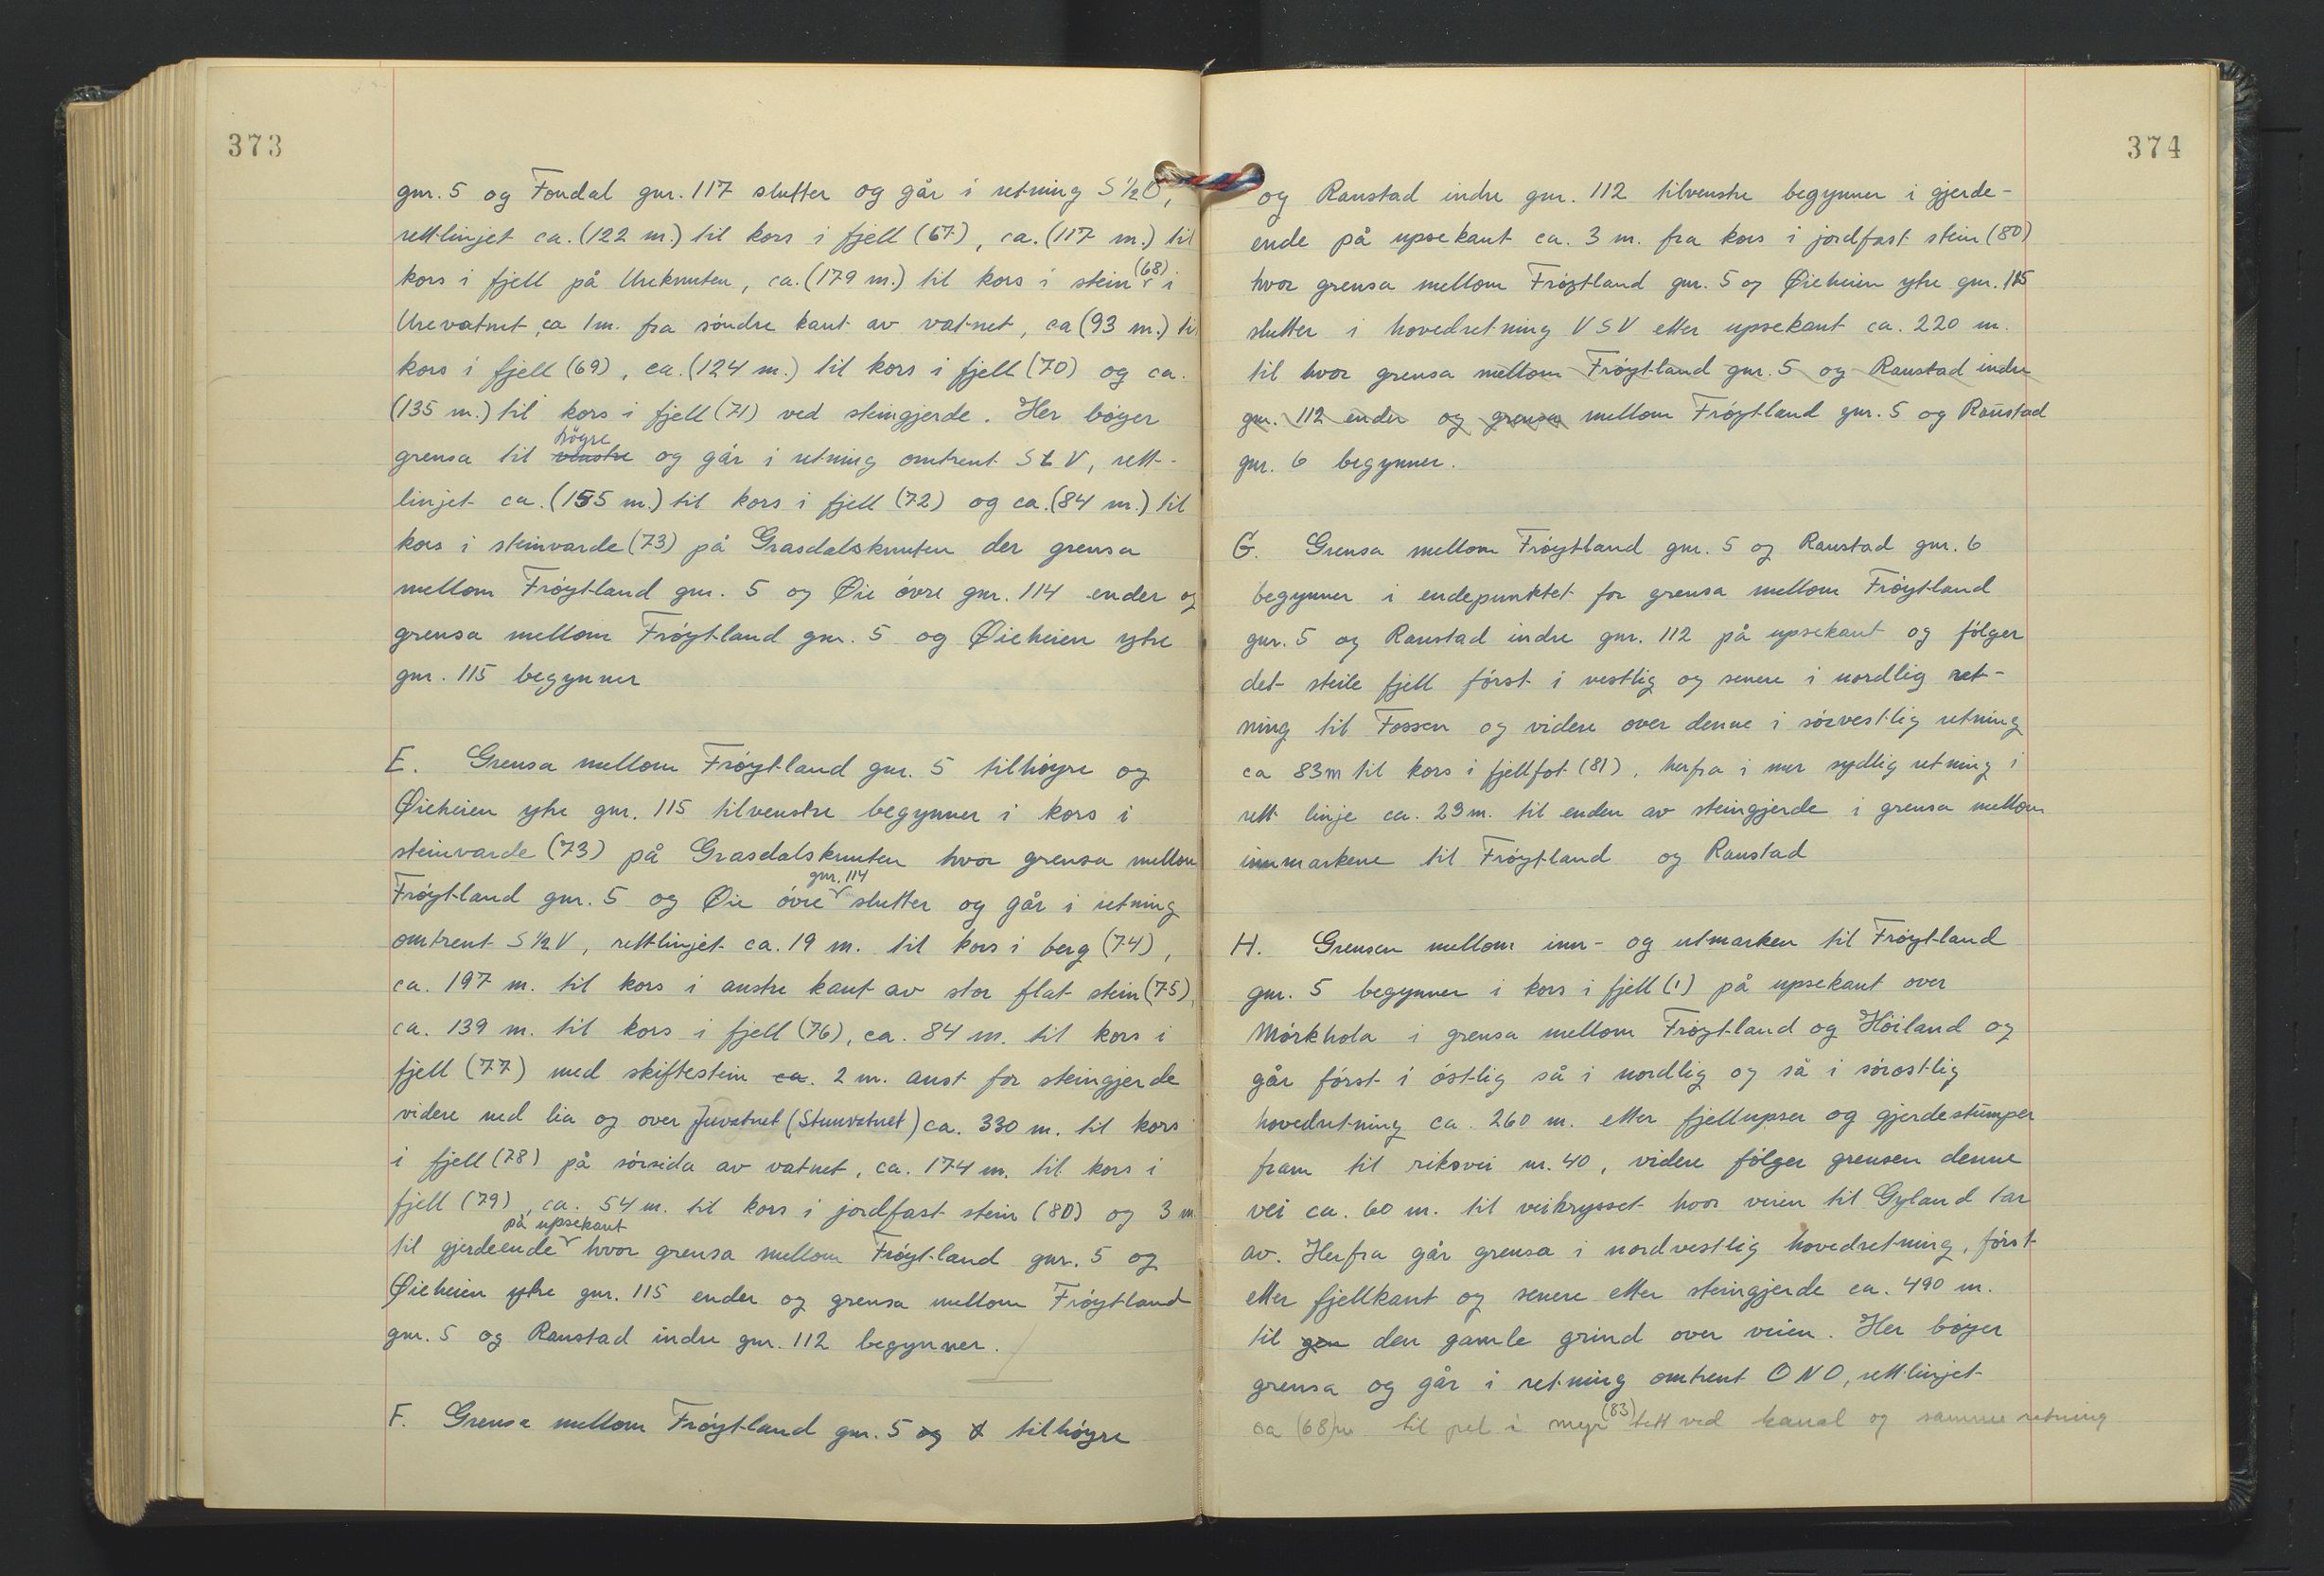 373
gnr. 5 og Fondal gnr. 117 slutter og går i retning S ½ O,
rettlinjet ca. (122 m.) til kors i fjell (67), ca. (117 m.) til
kors i fjell på Ureknuten, ca. (179 m.) til kors i stein (68) i
Urevatnet ca 1 m. fra söndre kant av vatnet, ca (93 m.) til
kors i fjell (69), ca. (124 m.) til kors i fjell (70) og ca.
(135 m.) til kors i fjell (71) ved steingjerde. Her böyer
grensa til venstre högre og går i retning omtrent S t V, rett-
linjet ca. (155 m.) til kors i fjell (72) og ca. (84 m.) til
kors i steinvarde (73) på Grasdalsknuten der grensa
mellom Fröytland gnr. 5 og Øie övre gnr. 114 ender og
grensa mellom Fröytland gnr. 5 og Øieheien ytre
gnr. 115 begynner
E. Grensa mellom Fröytland gnr. 5 tilhöyre og
Øieheien ytre gnr. 115 tilvenstre begynner i kors i
steinvarde (73) på Grasdalsknuten hvor grensa mellom
Fröytland gnr. 5 og Øie övre gnr. 114 slutter og går i retning
omtrent S ½ V, rettlinjet ca. 19 m. til kors i berg (74),
ca. 197 m. til kors i austre kant av stor flat stein (75),
ca. 139 m. til kors i fjell (76), ca. 84 m. til kors i
fjell (77) med skiftestein ca. 2 m. aust for steingjerde
videre ned lia og over Juvatnet (Stuvatnet) ca. 330 m. til kors
i fjell (78) på sörsida av vatnet, ca. 174 m. til kors i
fjell (79), ca. 54 m. til kors i jordfast stein (80) og 3 m.
til gjerdeende på upsekant hvor grensa mellom Fröytland gnr. 5 og
Øieheien ytre gnr. 115 ender og grensa mellom Fröytland
gnr. 5 og Ranstad indre gnr. 112 begynner.
F. Grensa mellom Fröytland gnr. 5 og tilhöyre
374
og Ranstad indre gnr. 112 tilvenstre begynner i gjerde-
ende på upsekant ca. 3 m. fra kors i jordfast stein (80)
hvor grensa mellom Fröytland gnr. 5 og Øieheien ytre gnr. 115
slutter i hovedretning VSV etter upsekant ca. 220 m.
til hvor grensa mellom Fröytland gnr. 5 og Ranstad indre
gnr. 112 ender og grensa mellom Fröytland gnr. 5 og Ranstad
gnr. 6 begynner.
G. Grensa mellom Fröytland gnr. 5 og Ranstad gnr. 6
begynner i endepunktet for grensa mellom Fröytland
gnr. 5 og Ranstad indre gnr. 112 på upsekant og fölger
det steile fjell först i vestlig og senere i nordlig ret-
ning til Fossen og videre over denne i sörvestlig retning
ca 83m til kors i fjellfot (81), herfra i mer sydlig retning i
rett linje ca. 29 m. til enden av steingjerde i grensa mellom
innmarkene til Fröytland og Ranstad
H. Grensen mellom inn- og utmarken til Fröytland
gnr. 5 begynner i kors i fjell (1) på upsekant over
Mörkhola i grensa mellom Fröytland og Höiland og
går först i östlig så i nordlig og så i söröstlig
hovedretning ca. 260 m. etter fjellupser og gjerdestumper
fram til riksvei nr. 40, videre fölger grensen denne
vei ca. 60 m. til veikrysset hvor veien til Gyland tar
av. Herfra går grensa i nordvestlig hovedretning, först
etter fjellkant og senere etter steingjerde ca. 490 m.
til gen den gamle grind over veien. Her böyer
grensa og går i retning omtrent ONO, rettlinjet
ca (68) m til pel i myr (83) tett ved kanal og samme retning